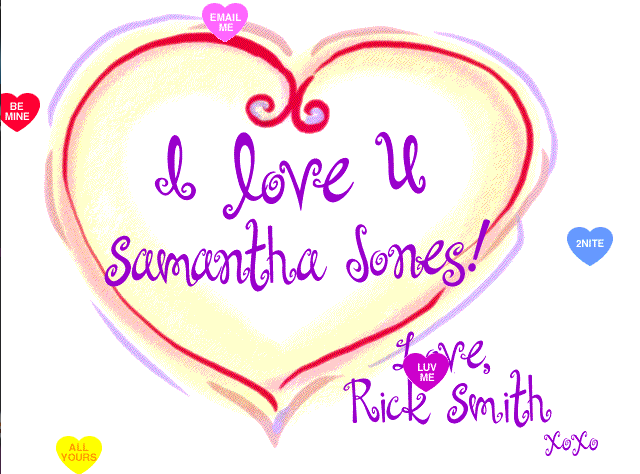 EMAIL
ME
BE
MINE
I love U
Samantha Jones!
2NITE
Love,
LUV
ME
Rick Smith
xoxo
ALL
YOURS